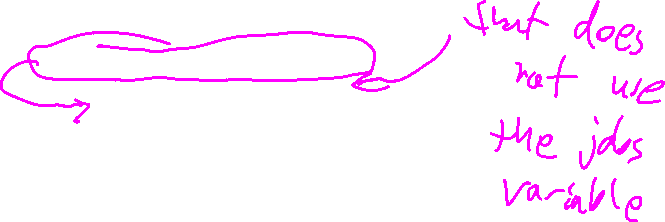 that does
not use
the jobs
variable